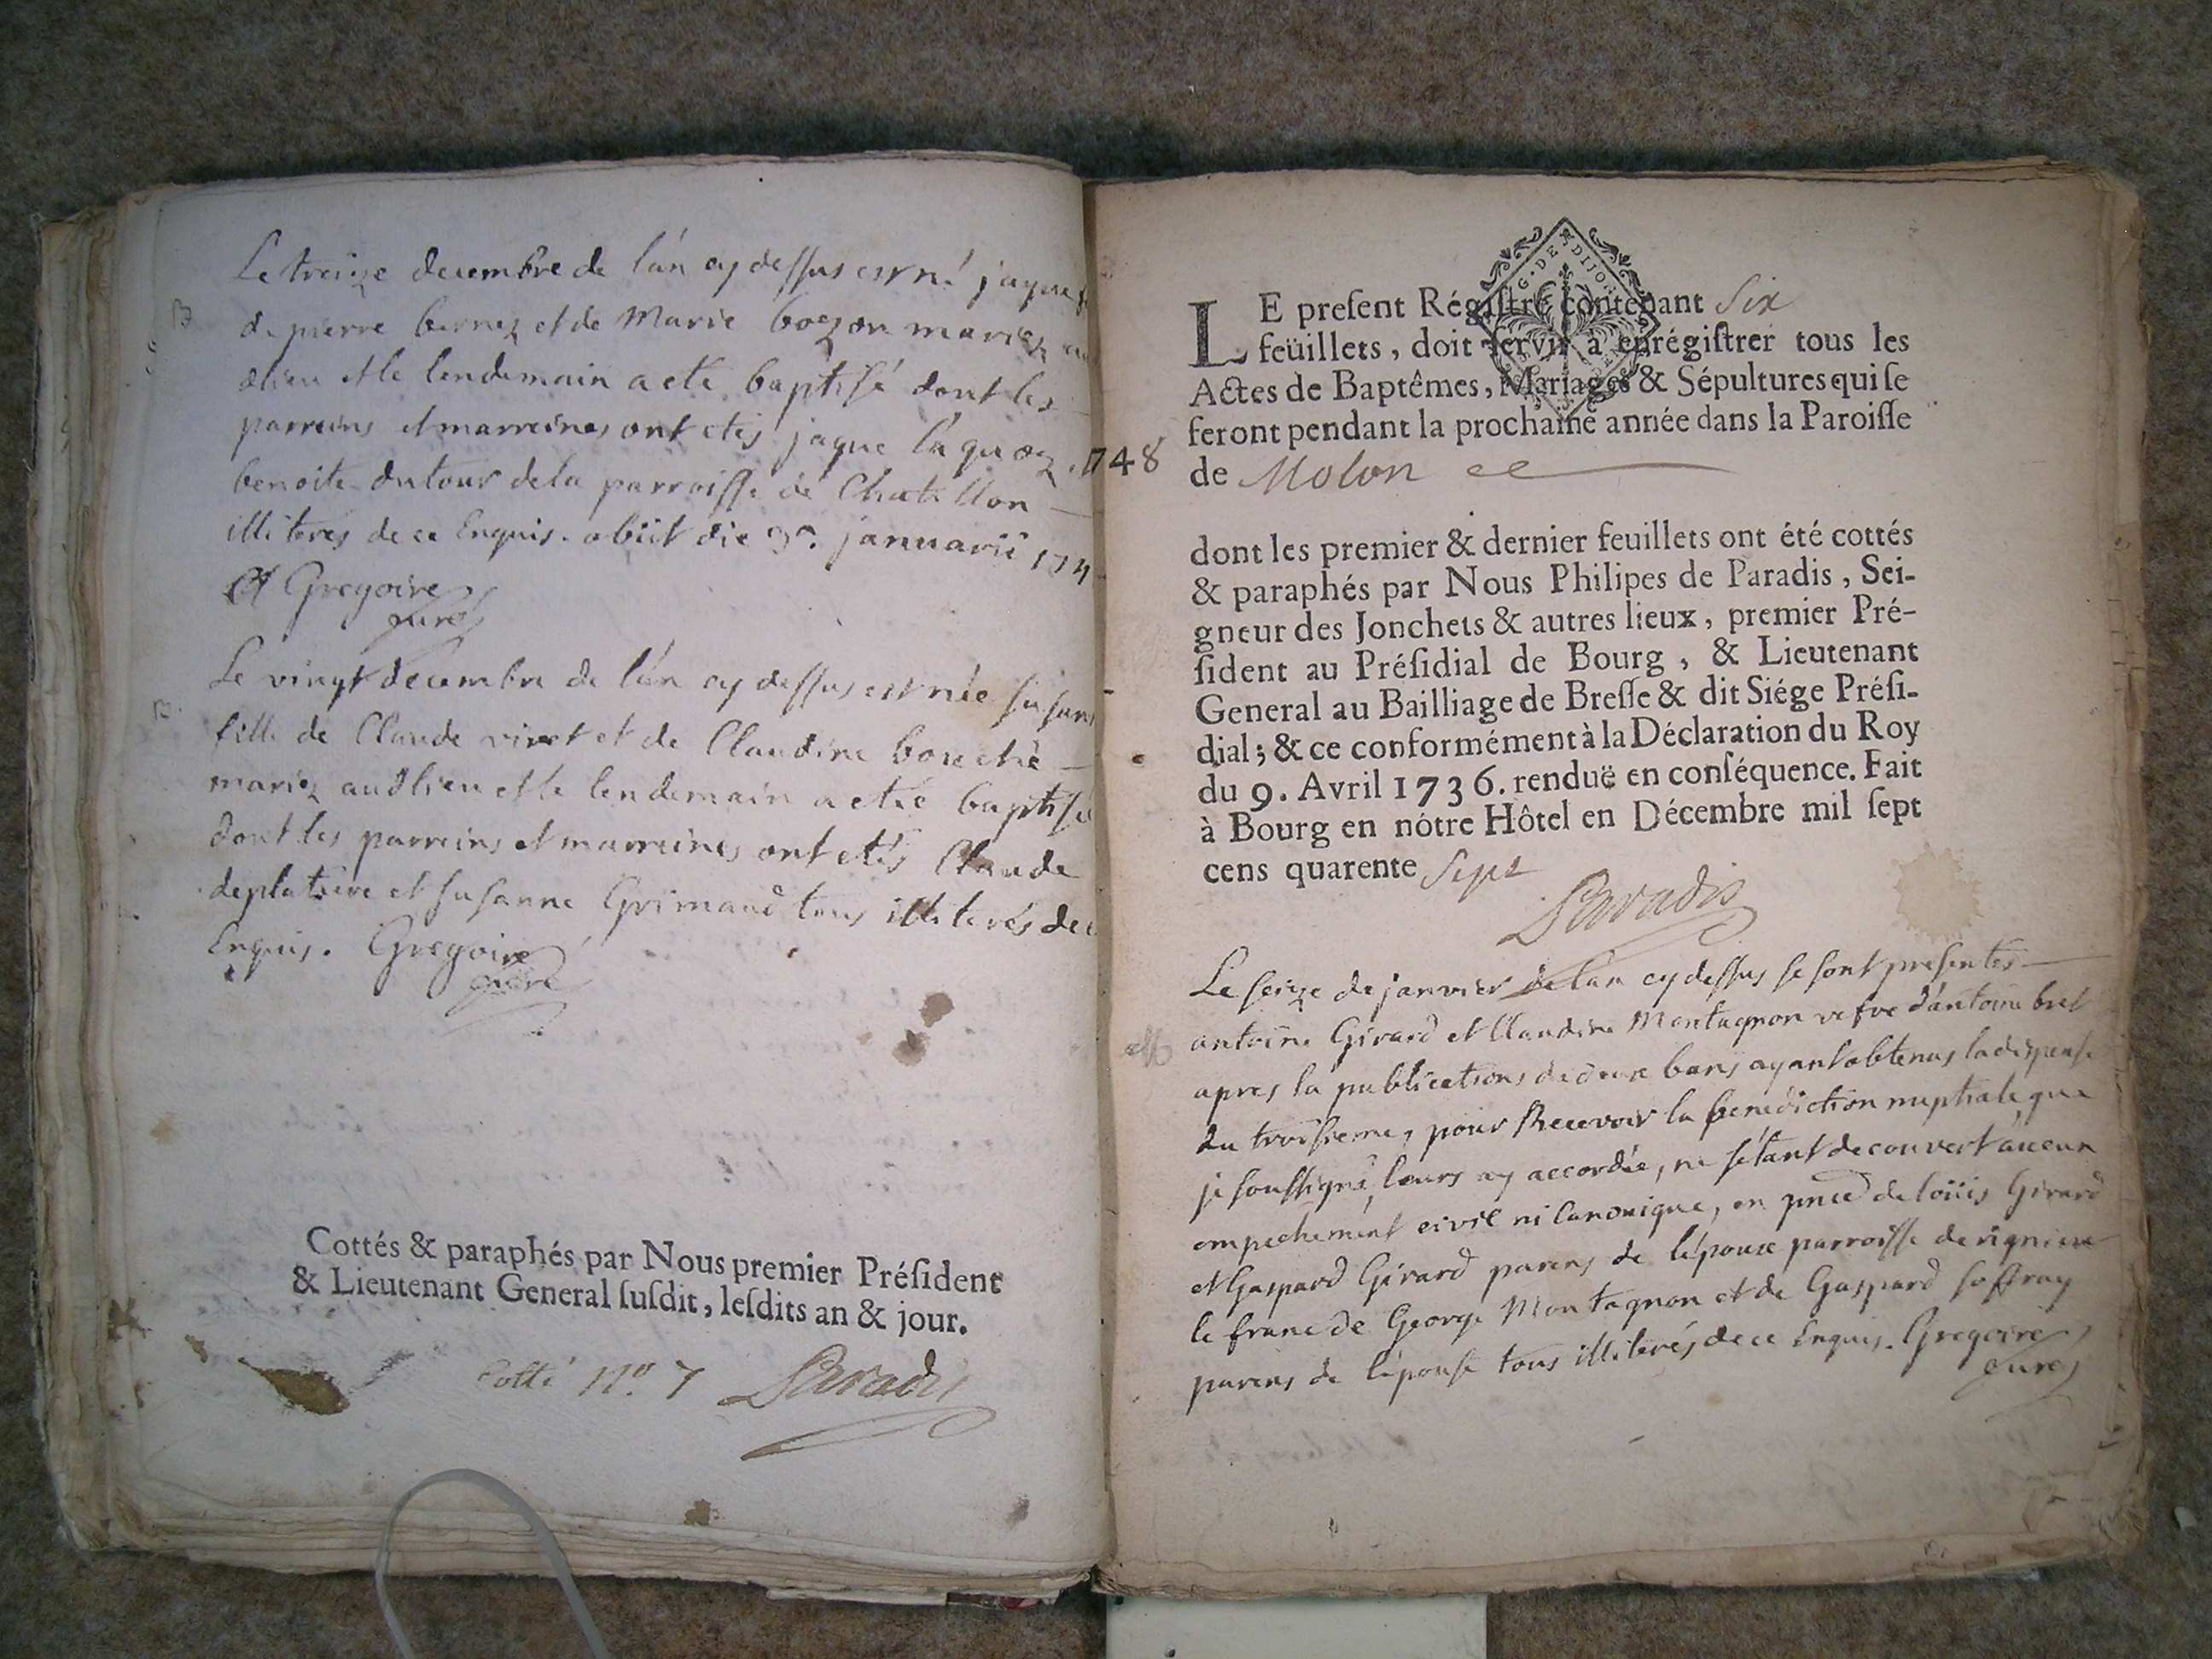 Le treize decembre de l'an cy dessus est né jaque
B
de pierre bernez et de Marie bozon mariez
dlieu et le lendemain a eté baptisé dont les
parreins et marreines ont etés jaque laquoz
benoite dutour de la parroisse de Chatillon
illiteres de ce Enquis. obiit die 3a. januarii 174
Gregoire
curé
Le vingt decembre de l'an cy dessus est née susan
B
fille de Claude viret et de Claudine bouché
mariez audlieu et le lendemain a eteé baptisé
dont les parreins et marreines ont etés Claude
deplatiere et susanne Grimaud tous illiterés de c
Enquis. Gregoire
curé
Cottés & paraphés par Nous premier Préſident
& Lieutenant General ſuſdit, leſdits an & jour.
Cotté No. 7 Paradis
G. DE DIJON
LE preſent Régiſtre contenant Six
feüillets, doit ſervir à enrégiſtrer tous les
Actes de Baptêmes, Mariages & Sépultures qui ſe
feront pendant la prochaine année dans la Paroiſſe
1748
de Molon
dont les premier & dernier feuillets ont été cottés
& paraphés par Nous Philipes de Paradis, Sei-
gneur des Jonchets & autres lieux, premier Pré-
ſident au Préſidial de Bourg, & Lieutenant
General au Bailliage de Breſſe & dit Siége Préſi-
dial; & ce conformément à la Déclaration du Roy
du 9. Avril 1736. renduë en conſéquence. Fait
à Bourg en nótre Hôtel en Décembre mil ſept
cens quarente Sept
Paradis
Le seize de janvier de l'an cy dessus se sont presentes
antoine Girard et Claudine Montagnon vefve d'antoine bret
apres la publications de deux bans ayant obtenus la dispense
du troisieme, pour Recevoir la benediction nuptiale, que
je soussigné, leurs ay accordée, ne s'étant decouvert aucun
empechement civil ni Canonique, en pnce de loüis Girard
et Gaspard Girard parens de l'époux parroisse de rignieux
le franc de George Montagnon et de Gaspard soffray
parens de l'épouse tous illiterés de ce Enquis. Gregoire
curé